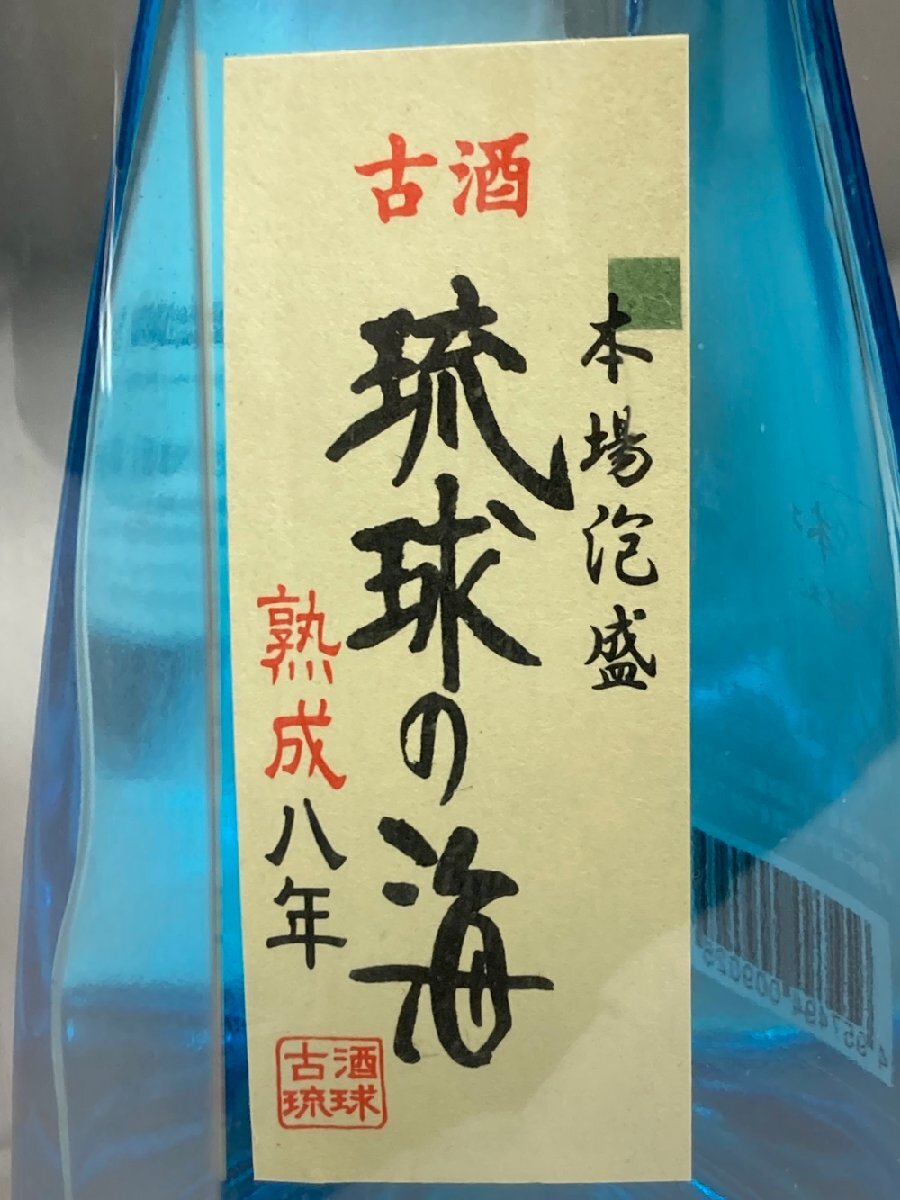 古酒
本場泡盛
琉球の海
熟成八年
古酒
琉球